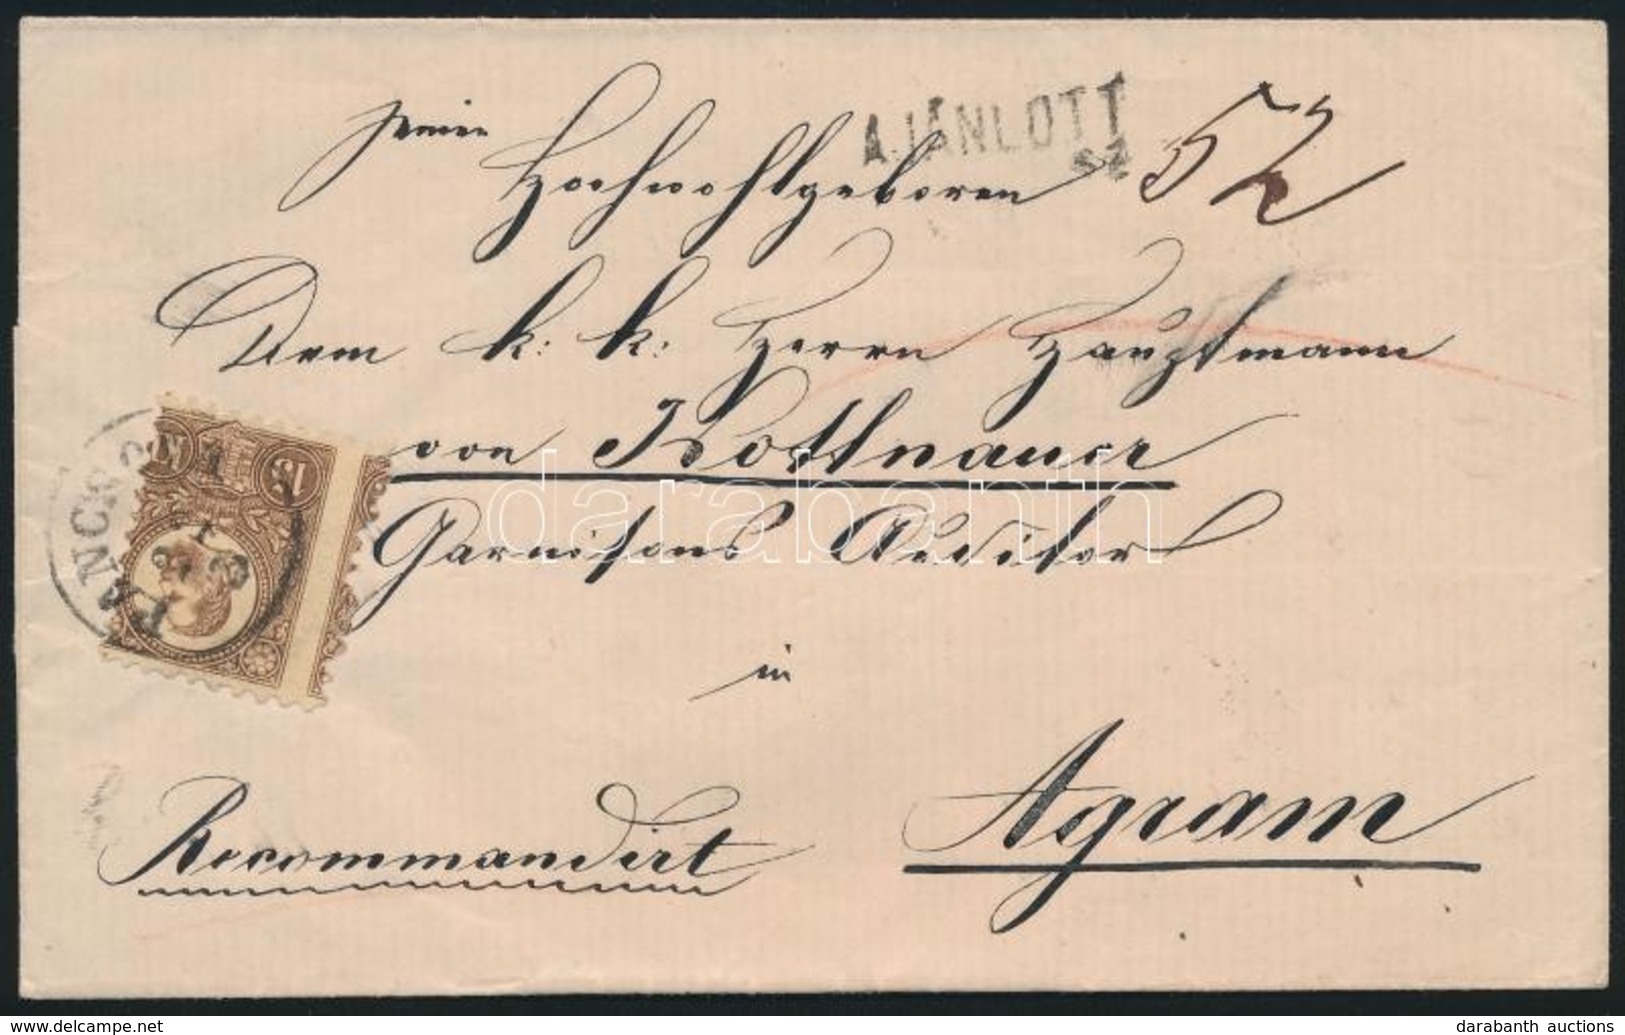 AJÁNLOTT
SZ 52
Seiner Hochwohlgeboren
Dem k: k: Herrn Hauptmann
von Rottnauer
Garnisons Auditor
in
Agram
Recommandirt
PANCSOVA
15
darabanth
www.delcampe.net
darabanth auctions